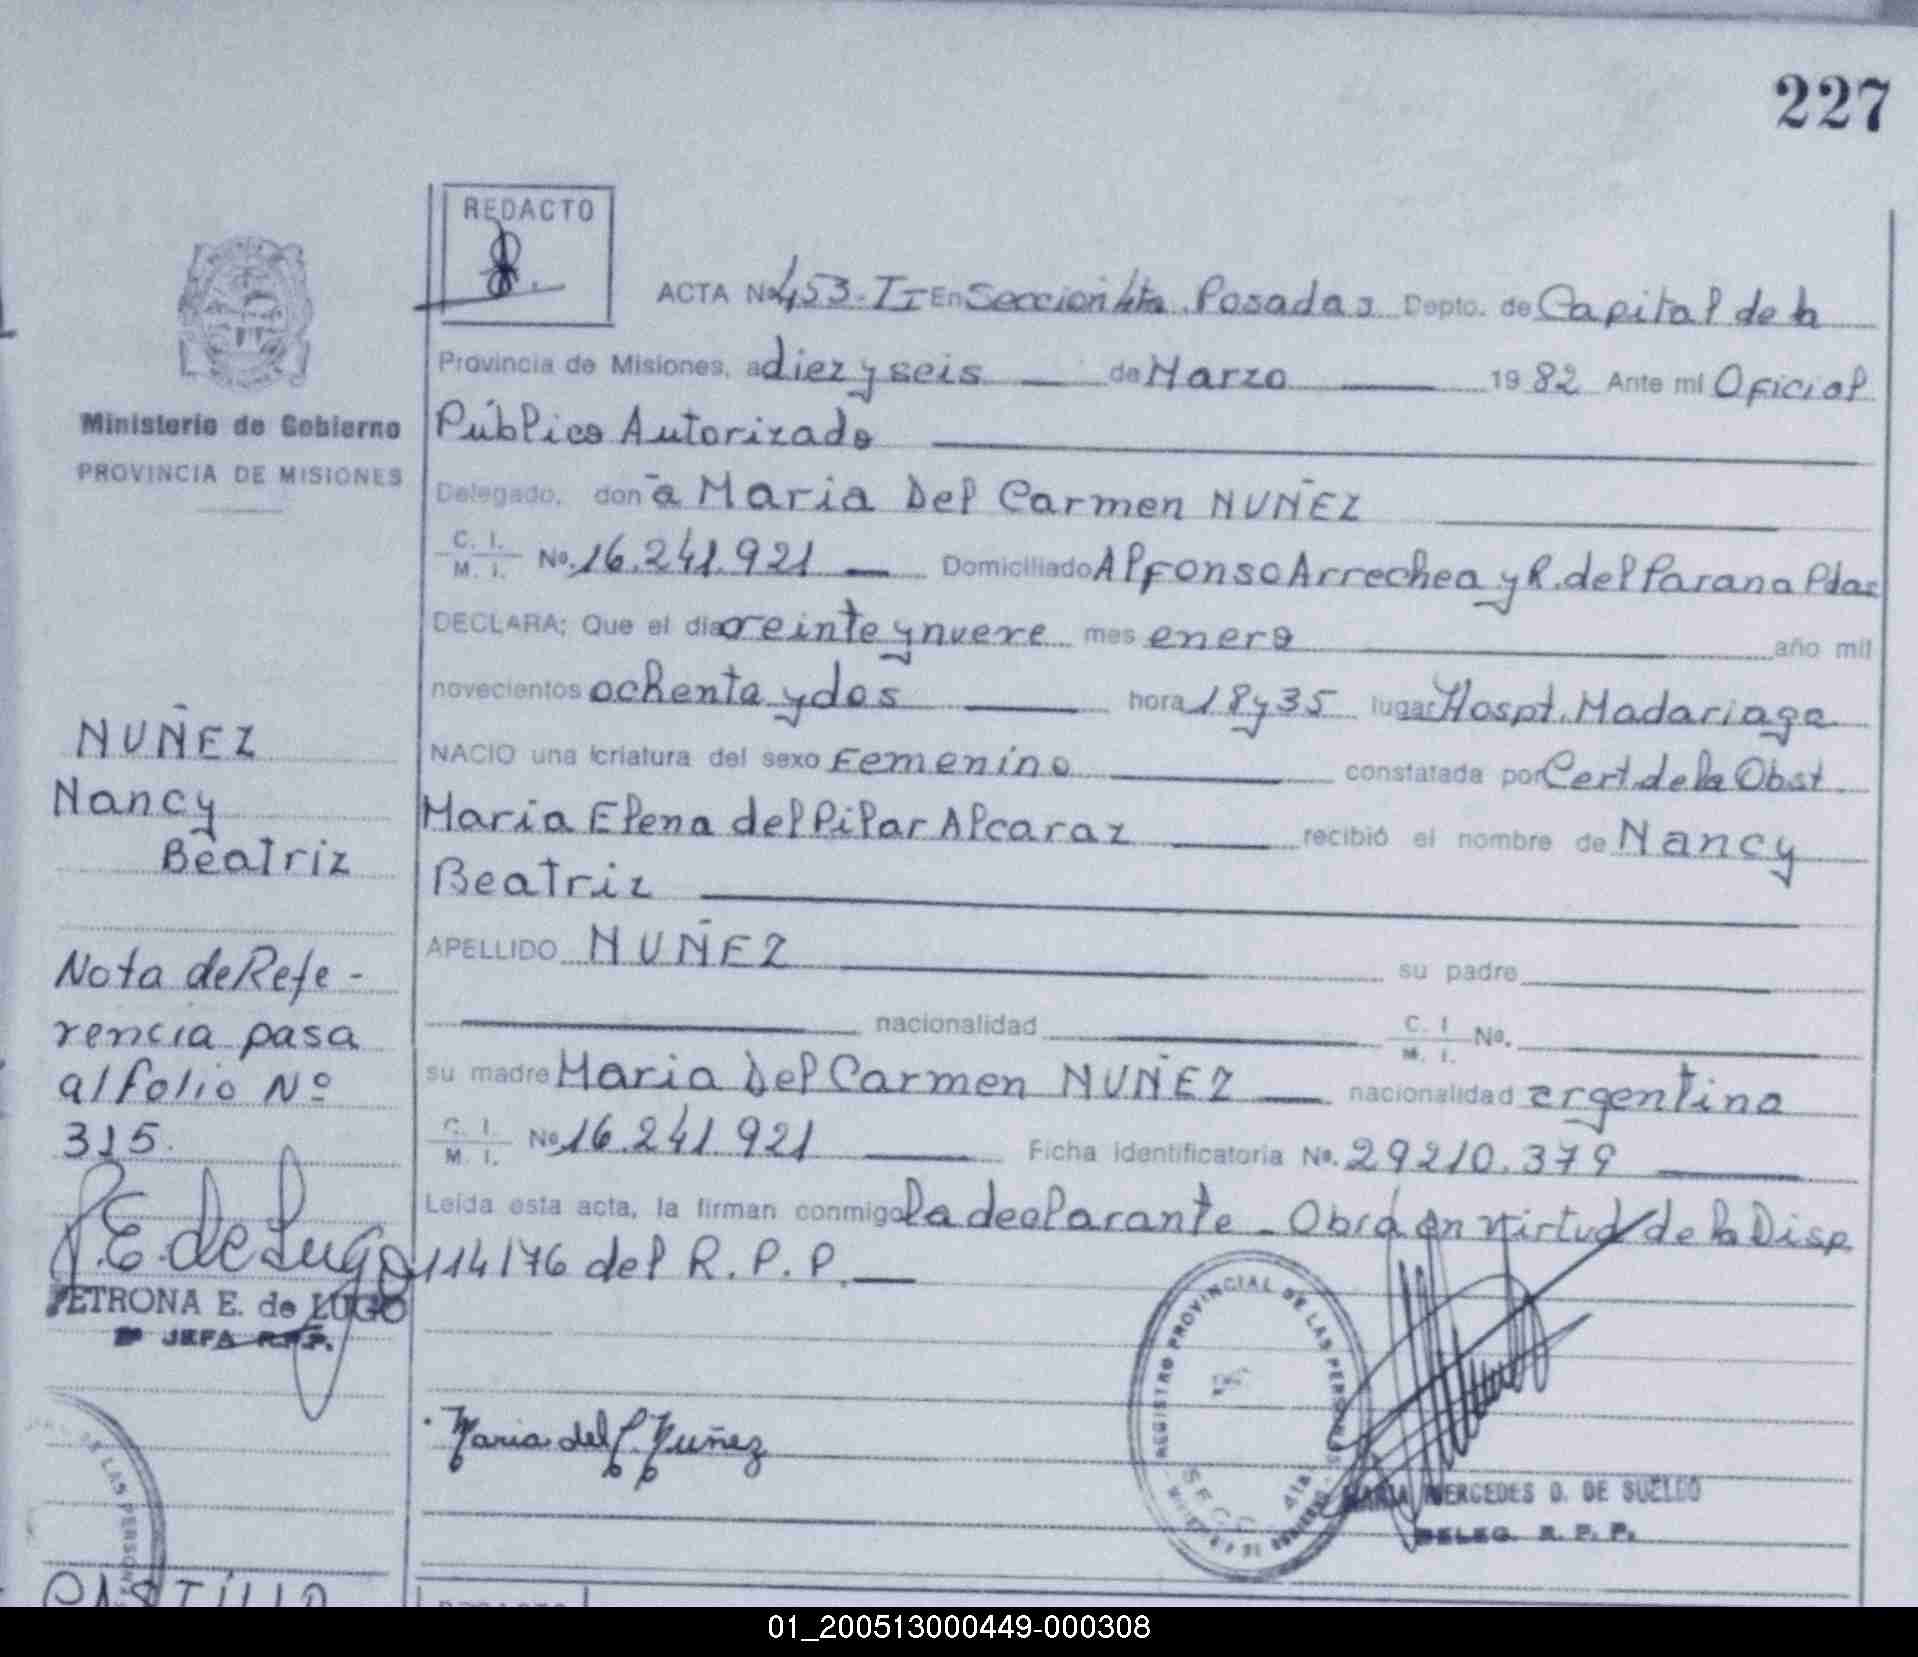 227
REDACTO
ACTA No 453-II En Seccion 4ta. Posadas Depto. de Capital de la
Provincia de Misiones, a diez y seis de Marzo 1982 Ante mi Oficial
Público Autorizado
Ministerio de Gobierno
PROVINCIA DE MISIONES
Delegado, don ã Maria Del Carmen NUÑEZ
C. I.
M. I. No. 16.241.921 Domiciliado Alfonso Arrechea y R. del Parana Pdas
DECLARA; Que el dia veinte y nueve mes enero año mil
novecientos ochenta y dos hora 18 y 35 lugar Hospt. Madariaga
NACIO una criatura del sexo Femenino constatada por Cert. de la Obst.
Maria Elena del Pilar Alcaraz recibió el nombre de Nancy
Beatriz
APELLIDO NUÑEZ su padre
nacionalidad C. I.
M. I. No.
su madre Maria Del Carmen NUÑEZ nacionalidad argentina
C. I.
M. I. No 16.241.921 Ficha identificatoria No. 29210.379
Leida esta acta, la firman conmigo la declarante - Obrá en virtud de la Disp.
114/76 del R. P. P.
Maria del C. Nuñez
REGISTRO PROVINCIAL DE LAS PERSONAS
SECC. 4ta
MARIA MERCEDES D. DE SUELDO
DELEG. R. P. P.
NUÑEZ
Nancy
Beatriz
Nota de Refe-
rencia pasa
al folio Nº
315.
P.E. de Lugo
PETRONA E. de LUGO
JEFA R.P.P.
DE LAS PERSONAS
CASTILLO
REDACTO
01_200513000449-000308